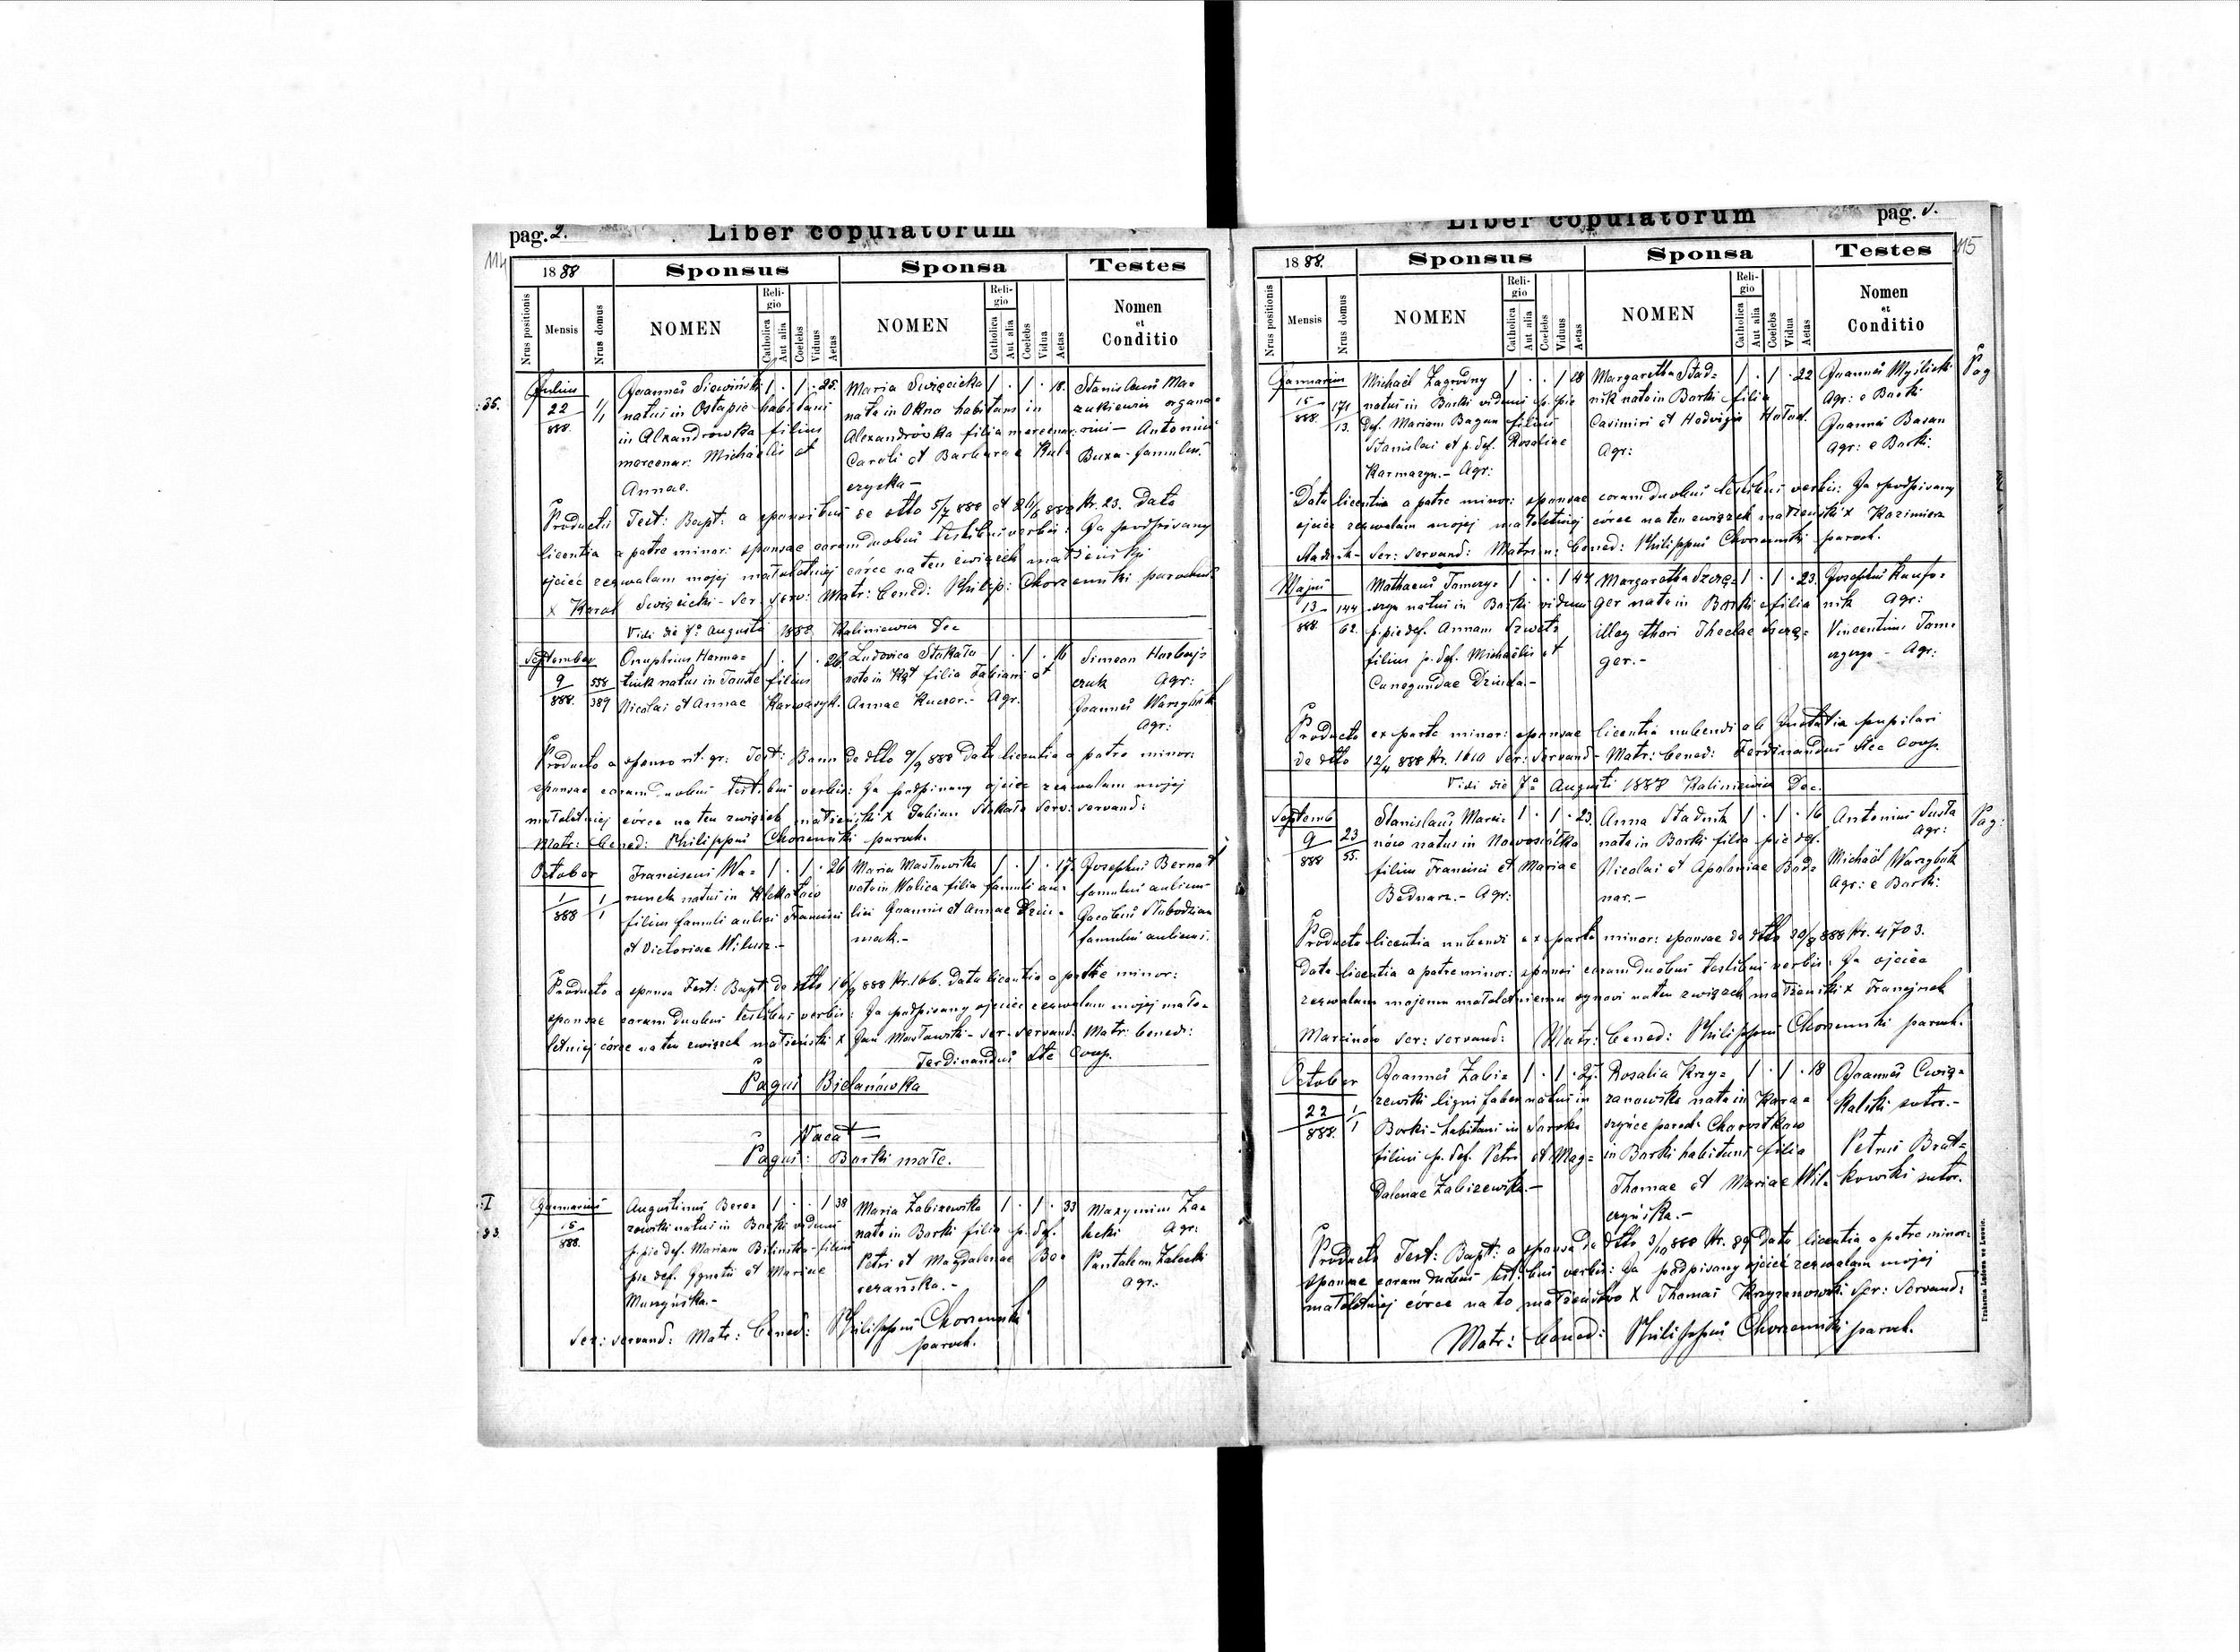 pag. 2.
Liber copulatorum
114
1888
Sponsus
Sponsa
Testes
Nrus positionis
Mensis
Nrus domus
NOMEN
Religio
Catholica
Aut alia
Coelebs
Viduus
Aetas
NOMEN
Religio
Catholica
Aut alia
Coelebs
Vidua
Aetas
Nomen
et
Conditio
Julius
22
888.
1/1
Joannes Siewiński
natus in Ostapie habitans
in Alexandrowka filius
mercenar: Michaelis et
Annae.
1 . 1 . 25.
Maria Swięcicka
nata in Okno habitans in
Alexandrówka filia mercenar:
Caroli et Barbarae
1 . 1 . 18.
Stanislaus Ma=
zukiewicz organa=
rius - Antonius
Buxa - famulus.
Productis Test: Bapt: a sponsibus de dtto 5/7 888 et Nr. 23. Data
licentia a patre minor: sponsae coram duobus testibus verbis: Ja podpisany
ojciec zezwalam mojej małoletniej córce na ten związek małżeński
x Karol Swięcicki - Ser: serv: Matr: bened: Philip: Chorzemski parochus
Vidi die 7a Augusti 1888 Kaliniewicz Dec
September
9
888.
558
389
Onuphrius Harma=
natus in Touste filius
Nicolai et Annae
1 . 1 . 26
Ludovica Stakała
nata in filia Fabiani et
Annae Agr.
1 . 1 . 16
Simeon
czuk Agr:
Joannes Warzybok
Agr:
Producto a sponso rit. gr: Test: Bann de dtto 9/9 888 Data licentia a patre minor:
sponsae coram duobus testibus verbis: Ja podpisany ojciec zezwalam mojej
małoletniej córce na ten związek małżeński x Fabian Stakała Serv: servand:
Matr: bened: Philippus Chorzemski paroch.
October
1
888
1
1
Franciscus Wa=
natus in
filius famuli aulici Francisci
et Victoriae
1 . 1 . 26
Maria Masłowska
nata in Wolica filia famuli au=
lici Joannis et Annae Dziu=
mak.-
1 . 1 . 17.
Josephus Bernat
famulus aulicus
Jacobus Słobodzian
famulus aulicus.
Producto a sponsa Test: Bapt: de dtto 16/9 888 Nr. 166. Data licentia a patre minor:
sponsae coram duobus testibus verbis: Ja podpisany ojciec zezwalam mojej mało=
letniej córce na ten związek małżeński x Jan Masłowski - ser: servand: Matr: bened:
Ferdinandus Coop.
Pagus Bielanówka
Vacat
Pagus: Borki małe.
Januarius
15
888.
Augustinus Bere=
zowski natus in Borki viduus
p. pie def. Mariam Bilinska - filius
pie def. Ignatii et Mariae
1 . . 1 38
Maria Zabizewska
nata in Borki filia p. def.
Petri et Magdalenae Be=
rezańska.-
1 . 1 . 33
Maxymus Za=
lecki Agr:
Pantalem Zalecki
agr:
Ser: servand: Matr: bened: Philippus Chorzemski
paroch.
Liber copulatorum
pag. 3.
115
1888.
Sponsus
Sponsa
Testes
Nrus positionis
Mensis
Nrus domus
NOMEN
Religio
Catholica
Aut alia
Coelebs
Viduus
Aetas
NOMEN
Religio
Catholica
Aut alia
Coelebs
Vidua
Aetas
Nomen
et
Conditio
Januarius
15
888.
171
13.
Michaël Zagrodny
natus in Borki viduus p. pie
Def. Mariam Bagan filius
Stanislai et p. def. Rosaliae
Karmazyn.- Agr:
1 . . 1 28
Margaretha Stad=
nik nata in Borki filia
Casimiri et Hedvigis
Agr:
1 . 1 . 22
Joannes Myślicki
Agr: e Borki
Joannes Baran
Agr: e Borki.
Data licentia a patre minor: sponsae coram duobus testibus verbis: Ja podpisany
ojciec zezwalam mojej małoletniej córce na ten związek małżeński x Kazimierz
Stadnik - Ser: servand: Matr: bened: Philippus Chorzemski paroch.
Majus
13
888.
144
62.
Mathaeus Tomczy=
natus in Borki viduus
p. pie def. Annam
filius p. def. Michaëlis et
Cunegundae Dziuda.-
1 . . 1 44
Margaretha Szerę=
ger nata in Borki filia
illeg thori Theclae Szerę=
ger.-
1 . 1 . 23.
Josephus
nik Agr:
Vincentius Tom=
Agr:
Producto ex parte minor: sponsae licentia nubendi ab Instantia pupilari
de dtto 12/4 888 Nr. 1610 Ser: servand - Matr: bened: Ferdinandus Coop.
Vidi die 7a Augusti 1888 Kaliniewicz Dec.
Septemb
9
888
23
55.
Stanislaus Marci=
nów natus in Nowosiółka
filius Francisci et Mariae
Bednarz.- Agr:
1 . 1 . 23.
Anna Stadnik
nata in Borki filia pie def.
Nicolai et Apoloniae Bod=
nar.-
1 . 1 . 16
Antonius Susta
Agr:
Michaël Warzybok
Agr: e Borki:
Pag:
Producto licentia nubendi ex parte minor: sponsae de dtto 30/8 888 Nr. 4703.
Data licentia a patre minor: sponsi coram duobus testibus verbis: Ja ojciec
zezwalam mojemu małoletniemu synowi na ten związek małżeński x Franciszek
Marcinów ser: servand: Matr: bened: Philippus Chorzemski paroch.
October
22
888.
1
1
Joannes Zabi=
zewski ligni faber natus in
Borki - habitans in Soroka
filius p. def. Petri et Mag=
dalenae Zabizewska.-
1 . 1 . 27.
Rosalia Krzy=
zanowska nata in
paroch: Chorostkow
in Borki habitans filia
Thomae et Mariae Wil=
czyńska.-
1 . 1 . 18
Joannes Cwią=
kalski sutor.-
Petrus Brat=
kowski sutor.
Producto Test: Bapt: a sponsa de dtto 3/10 888 Nr. 89 Data licentia a patre minor:
sponsae coram duobus testibus verbis: Ja podpisany ojciec zezwalam mojej
małoletniej córce na to małżeństwo x Thomas Krzyzanowski Ser: Servand:
Matr: bened: Philippus Chorzemski paroch.
Drukarnia Ludowa we Lwowie.